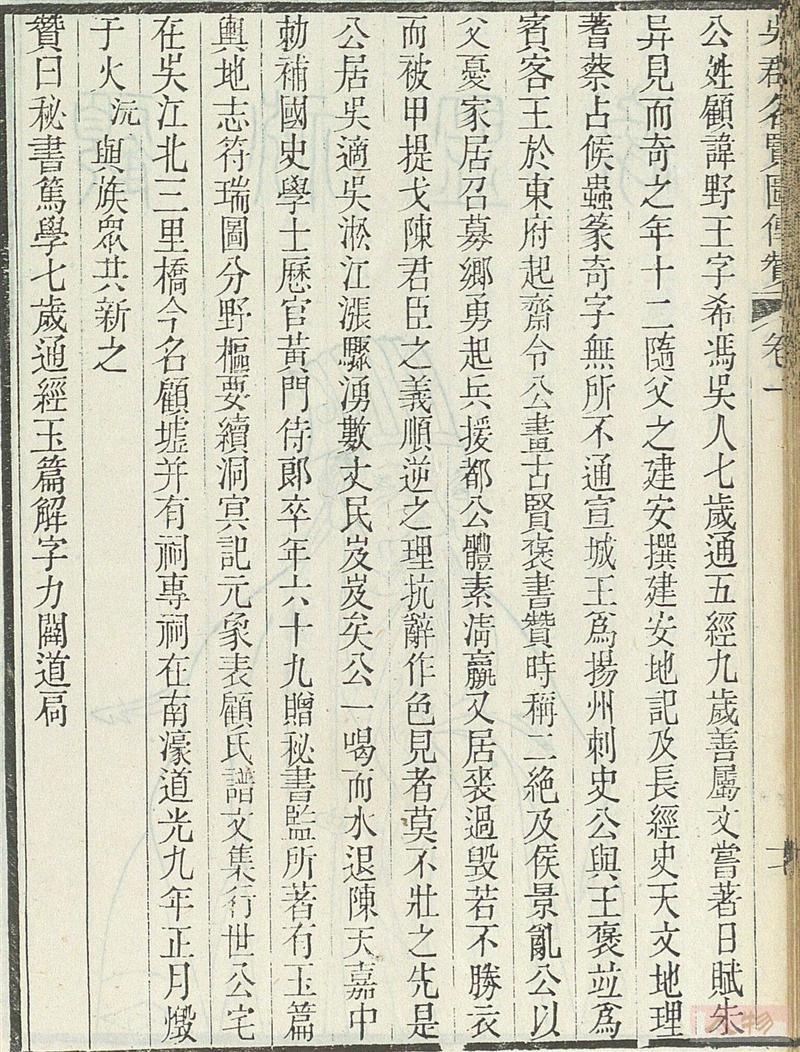 吳郡名賢圖傳贊 卷一
公姓顧諱野王字希馮吳人七歲通五經九歲善屬文嘗著日賦朱
异見而奇之年十二隨父之建安撰建安地記及長經史天文地理
蓍蔡占候蟲篆奇字無所不通宣城王爲揚州刺史公與王褒竝爲
賓客王於東府起齋令公畫古賢褒書贊時稱二絶及侯景亂公以
父憂家居召募鄉勇起兵援都公體素淸羸又居喪過毀若不勝衣
而被甲提戈陳君臣之義順逆之理抗辭作色見者莫不壯之先是
公居吳適吳淞江漲驟湧數丈民岌岌矣公一喝而水退陳天嘉中
勅補國史學士歷官黃門侍郎卒年六十九贈秘書監所著有玉篇
輿地志符瑞圖分野樞要續洞冥記元象表顧氏譜文集行世公宅
在吳江北三里橋今名顧墟并有祠專祠在南濠道光九年正月燬
于火沅與族眾共新之
贊曰秘書篤學七歲通經玉篇解字力闢道扃